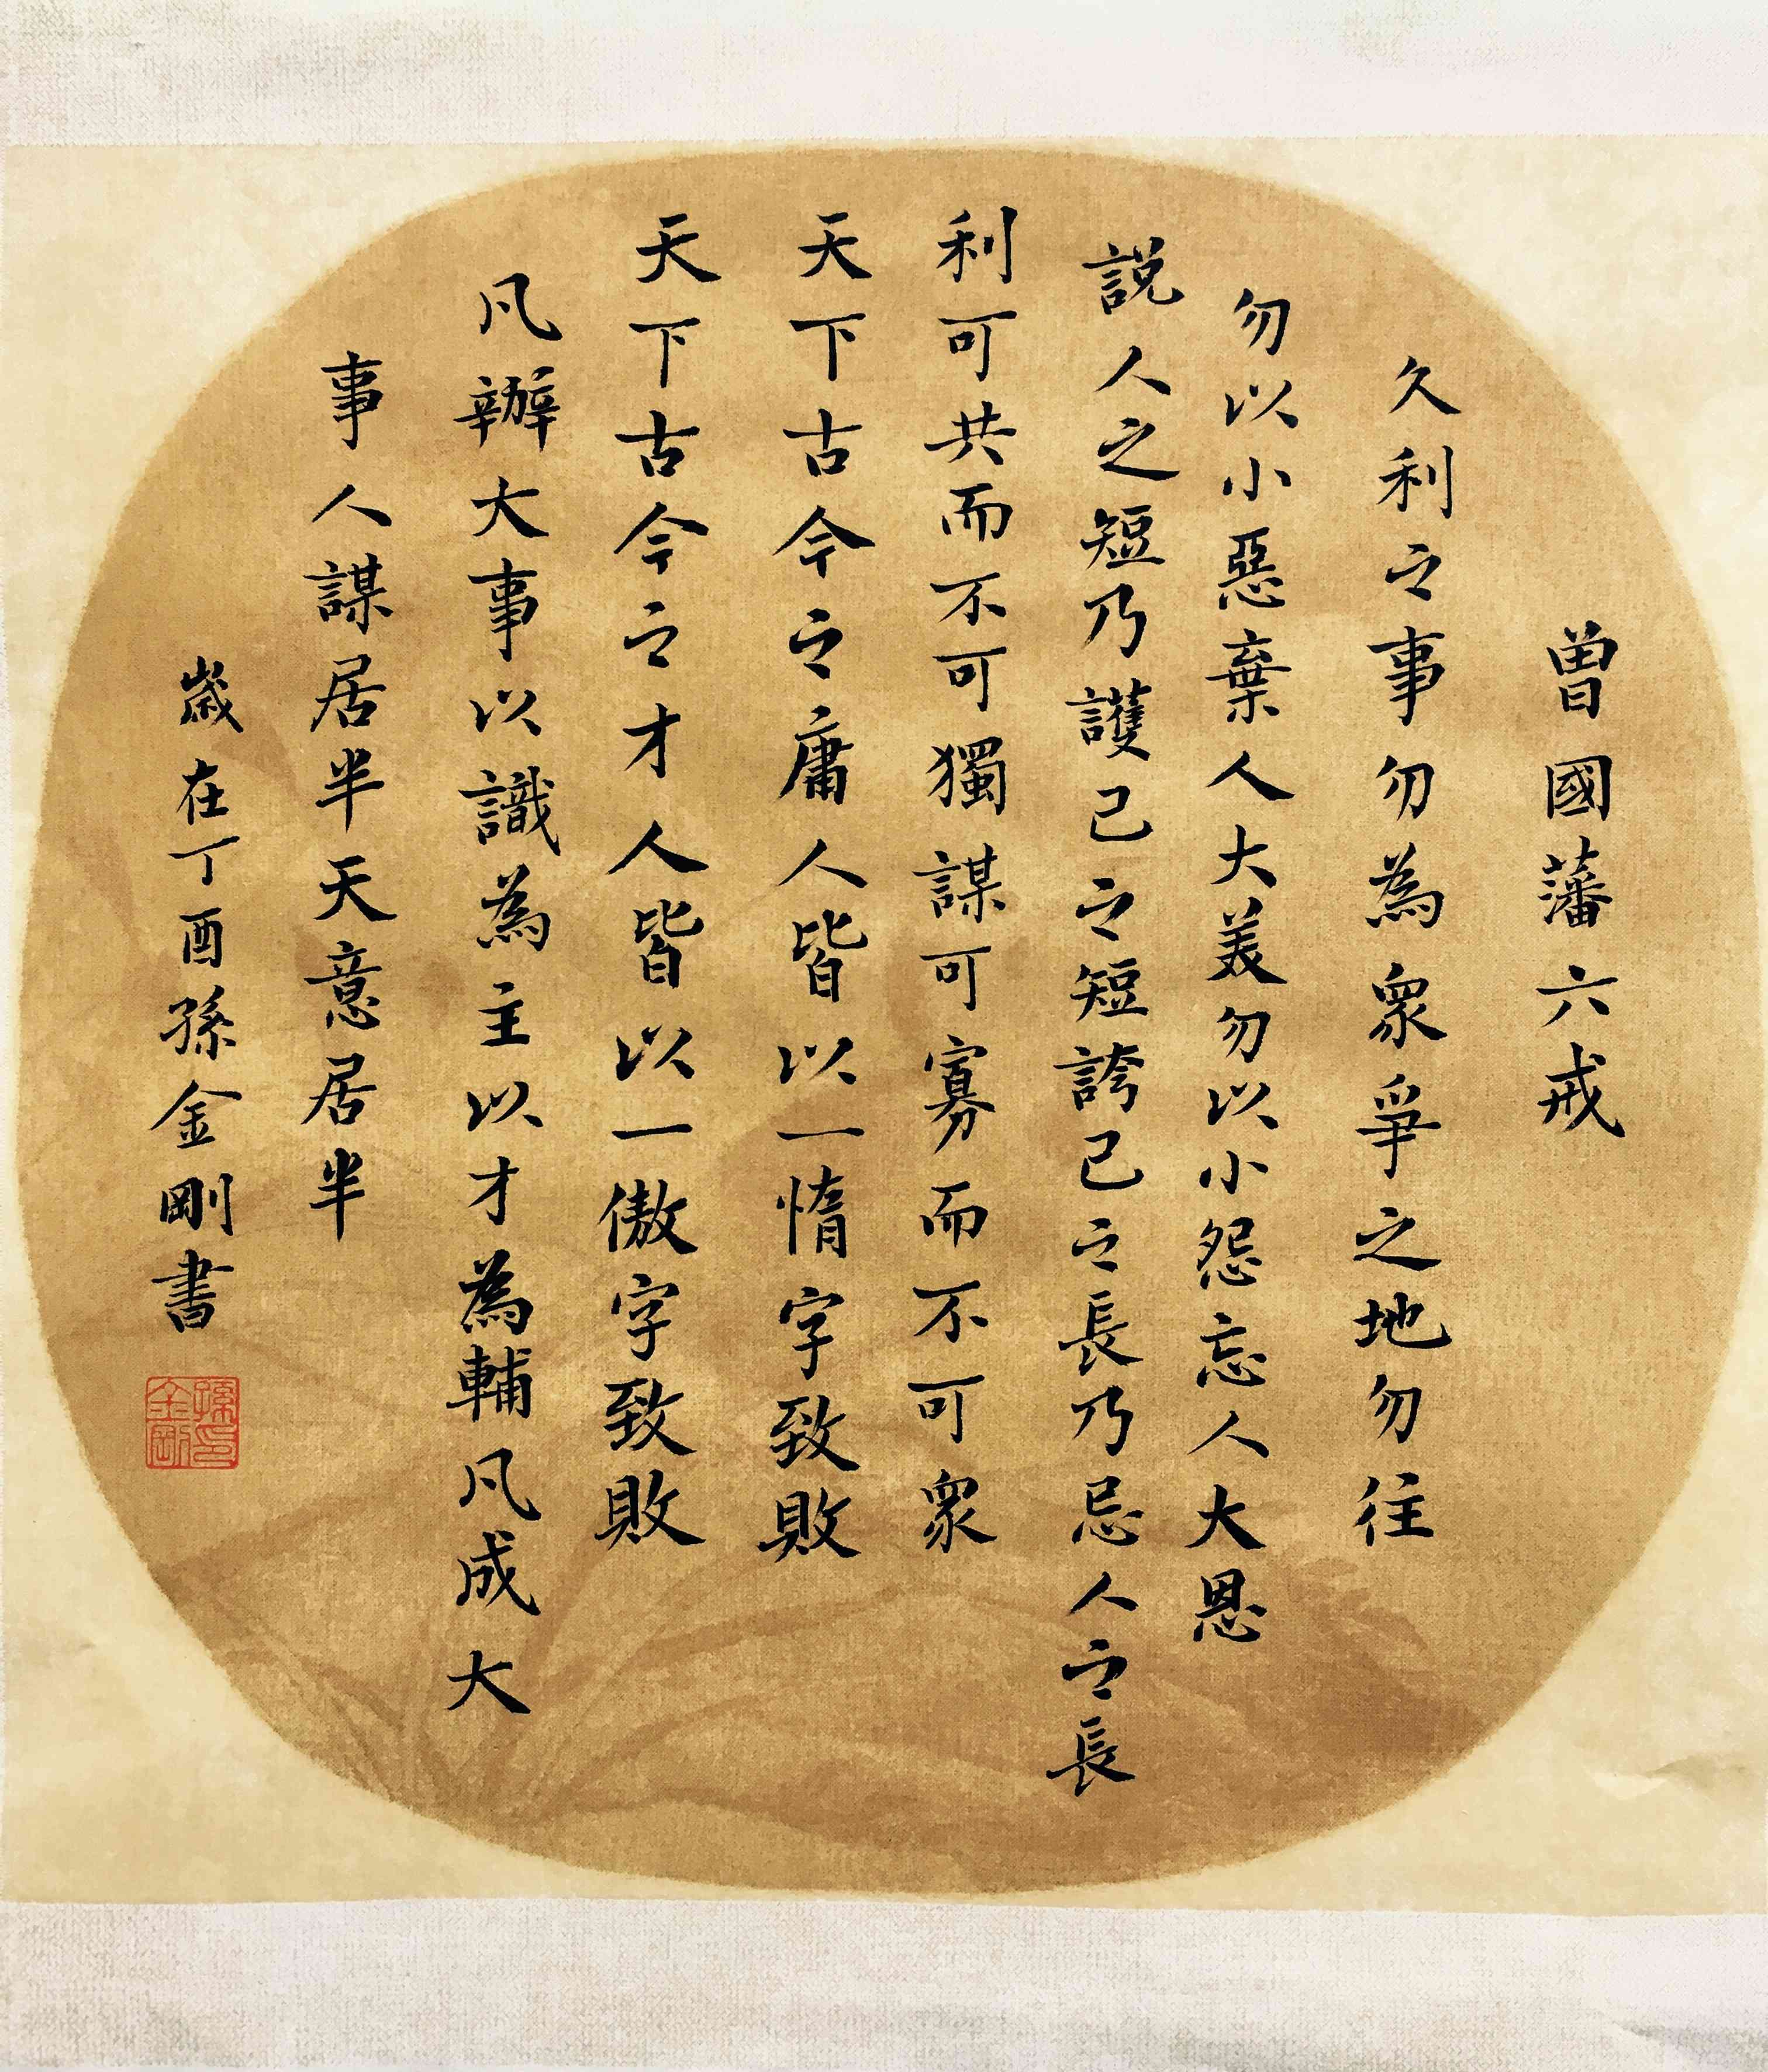 曾國藩六戒
久利之事勿為衆爭之地勿往
勿以小惡棄人大美勿以小怨忘人大恩
説人之短乃護己之短誇己之長乃忌人之長
利可共而不可獨謀可寡而不可衆
天下古今之庸人皆以一惰字致敗
天下古今之才人皆以一傲字致敗
凡辦大事以識為主以才為輔凡成大
事人謀居半天意居半
歲在丁酉孫金剛書
孫金剛印